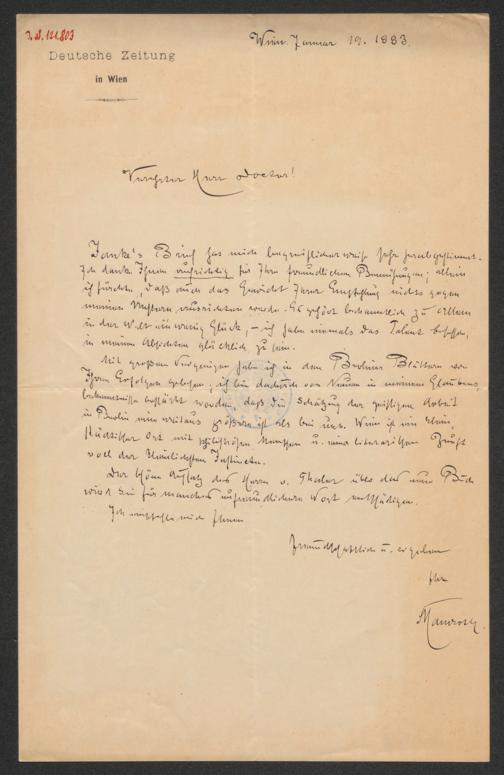 I.N. 121.803
Deutsche Zeitung
in Wien
Wien. Januar 19. 1883.
Verehrter Herr Doctor!
Janke's Brief hat mich begreiflicher weise sehr herabgestimmt.
Ich danke Ihnen aufrichtig für Ihre freundlichen Bemühungen; allein
ich fürchte, daß auch das Gewicht Ihrer Empfehlung nichts gegen
meinen Unstern ausrichten werde. Es gehört bekanntlich zu Allem
in der Welt ein wenig Glück, – ich habe niemals das Talent besessen,
in meinen Absichten glücklich zu sein.
Mit großem Vergnügen hab' ich in den Berliner Blättern von
Ihren Erfolgen gelesen, ich bin dadurch von Neuem in meinem Glaubens-
bekenntnisse bestärkt worden, daß die Schätzung der geistigen Arbeit
in Berlin eine weitaus größere ist als bei uns. Wien ist ein klein-
städtischer Ort mit philiströsen Menschen u. einer literarischen Zunft
voll der kleinlichsten Instincte.
Der schöne Aufsatz des Herrn v. Thaler über das neue Buch
wird Sie für manches unfreundlichere Wort entschädigen.
Ich empfehle mich Ihnen
freundschaftlich u. ergeben
Ihr